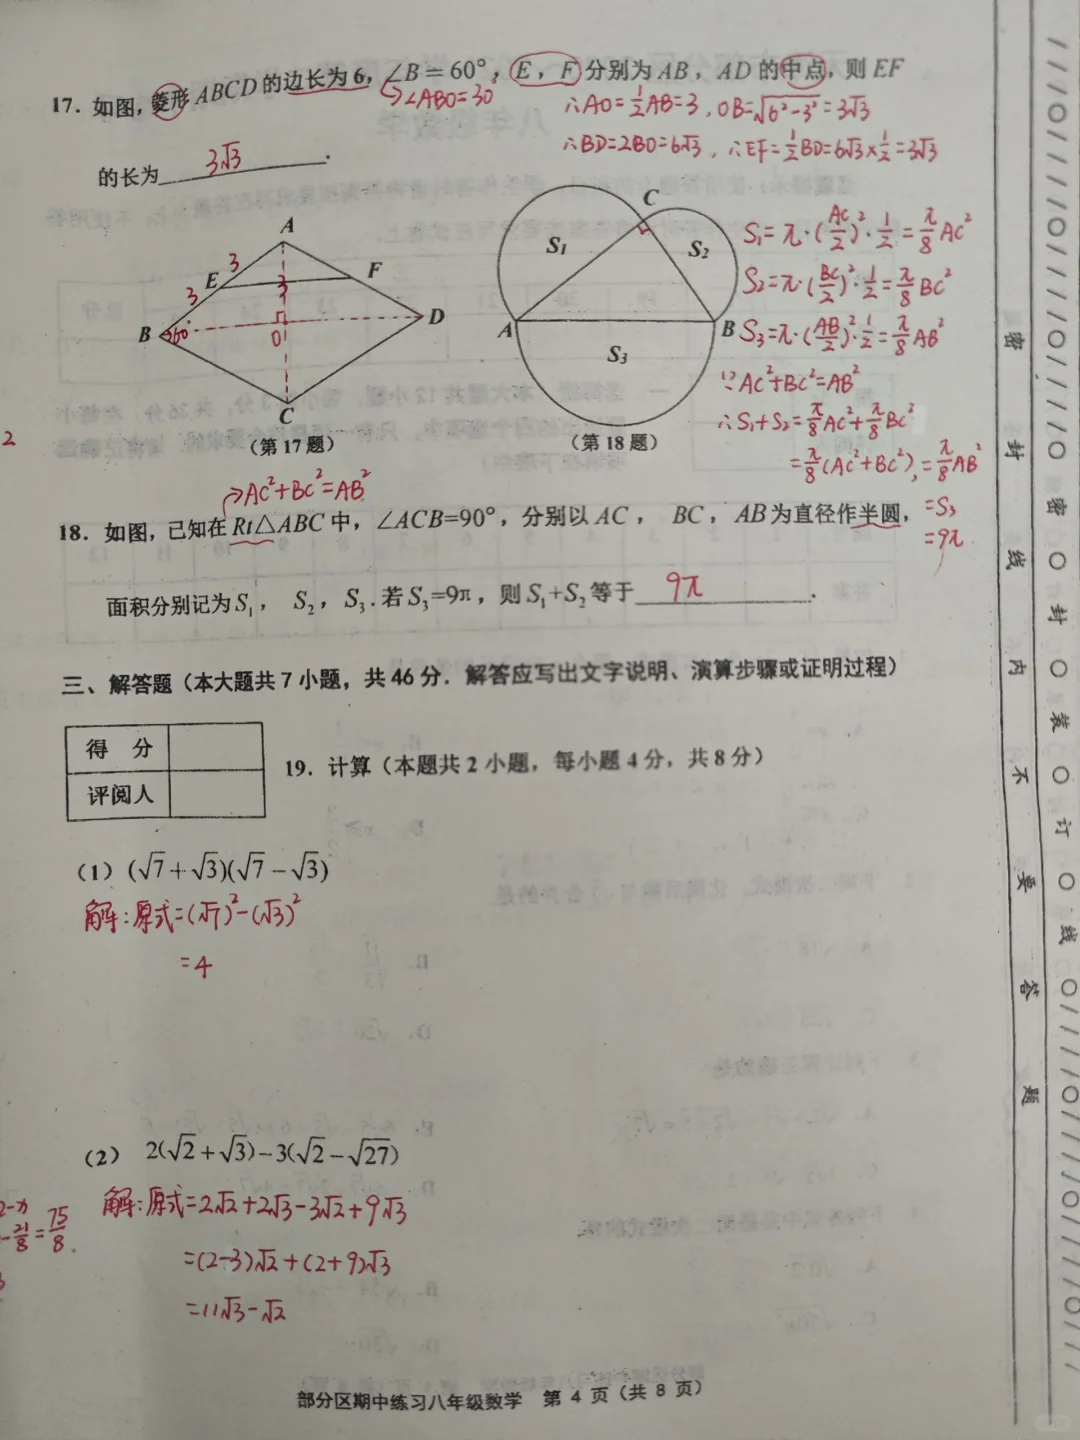 17. 如图,菱形ABCD的边长为6,∠B=60°,E,F分别为AB,AD的中点,则EF
↳∠ABO=30°
∴AO=½AB=3,OB=√(6²-3²)=3√3
∴BD=2BO=6√3,∴EF=½BD=6√3×½=3√3
的长为 3√3 .
A
E
F
3
3
3
B
60°
O
D
C
(第17题)
C
S₁
S₂
A
B
S₃
(第18题)
S₁=π·(AC/2)²·½=π/8 AC²
S₂=π·(BC/2)²·½=π/8 BC²
S₃=π·(AB/2)²·½=π/8 AB²
∵AC²+BC²=AB²
∴S₁+S₂=π/8 AC²+π/8 BC²
=π/8(AC²+BC²),=π/8 AB²
=S₃
=9π
2
→AC²+BC²=AB²
18. 如图,已知在Rt△ABC中,∠ACB=90°,分别以AC, BC,AB为直径作半圆,
面积分别记为S₁, S₂,S₃.若S₃=9π,则S₁+S₂等于 9π .
三、解答题(本大题共7小题,共46分.解答应写出文字说明、演算步骤或证明过程)
得 分
评阅人
19. 计算(本题共2小题,每小题4分,共8分)
(1)(√7+√3)(√7-√3)
解:原式=(√7)²-(√3)²
=4
(2) 2(√2+√3)-3(√2-√27)
解:原式=2√2+2√3-3√2+9√3
=(2-3)√2+(2+9)√3
=11√3-√2
-21/8=75/8.
部分区期中练习八年级数学 第 4 页(共 8 页)
密 封 线 内 不 要 答 题
密 ○ 封 ○ 装 ○ 订 ○ 线